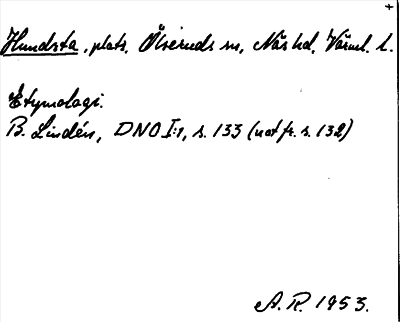 +
Hundsta, plats, Ölseruds sn, Näs hd, Värml. l.
Etymologi.
B. Lindén, DNO I:1, s. 133 (not fr. s. 132)
A.R. 1953.